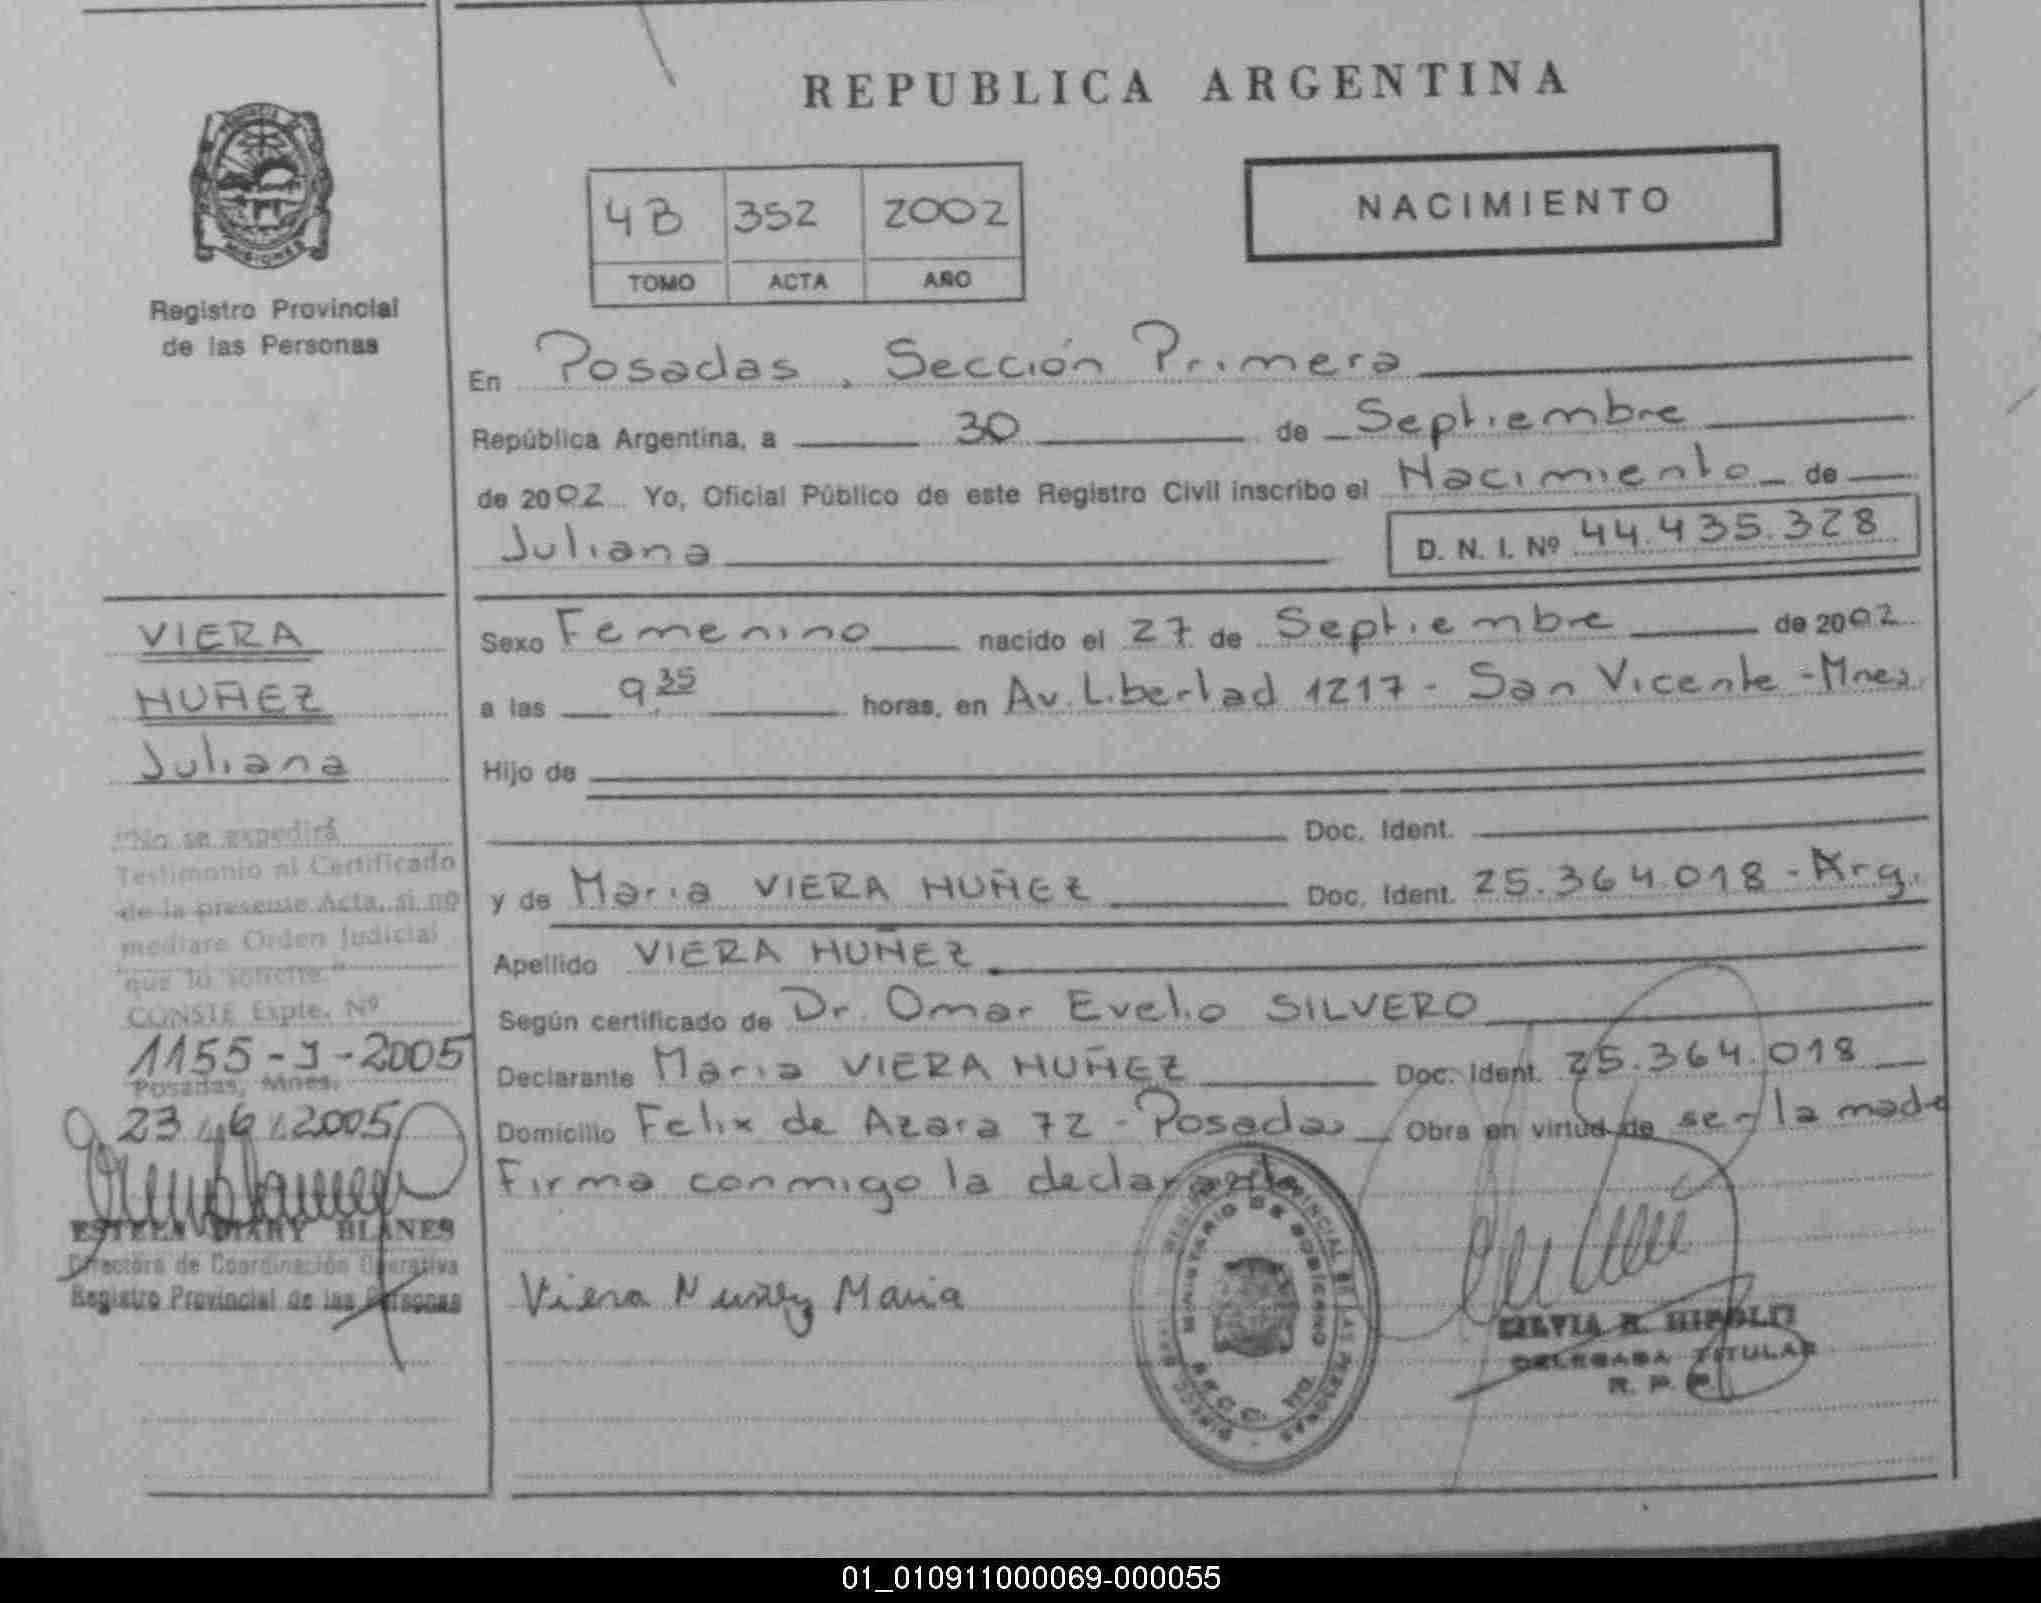 REPUBLICA ARGENTINA
MISIONES
Registro Provincial
de las Personas
4B 352 2002
TOMO ACTA AÑO
NACIMIENTO
En Posadas, Sección Primera
República Argentina, a 30 de Septiembre
de 2002 Yo, Oficial Público de este Registro Civil inscribo el Nacimiento de
Juliana
D. N. I. Nº 44.435.328
VIERA
NUÑEZ
Juliana
Sexo Femenino nacido el 27 de Septiembre de 2002
a las 9,35 horas, en Av. Libertad 1217 - San Vicente - Mnes.
Hijo de
Doc. Ident.
y de Maria VIERA NUÑEZ Doc. Ident. 25.364.018 - Arg.
Apellido VIERA NUÑEZ
Según certificado de Dr. Omar Evelio SILVERO
Declarante Maria VIERA NUÑEZ Doc. Ident. 25.364.018
Domicilio Felix de Azara 72 - Posadas Obra en virtud de ser la madre
Firma conmigo la declarante
"No se expedirá
Testimonio ni Certificado
de la presente Acta, si no
mediare Orden Judicial
que lo solicite."
CONSTE Expte. Nº
1155-J-2005
Posadas, Mnes.
23/6/2005
ESTELA DIARY BLANES
Directora de Coordinación Operativa
Registro Provincial de las Personas
Viera Nuñez Maria
MINISTERIO DE GOBIERNO
PROVINCIAL DE LAS PERSONAS
SILVIA R. HIPOLITI
DELEGADA TITULAR
R. P. P.
01_010911000069-000055